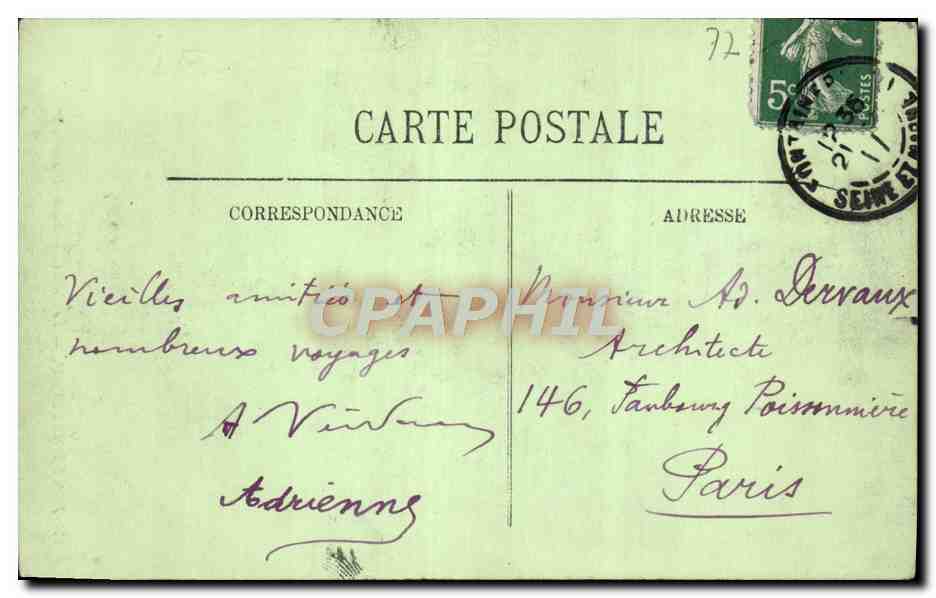 72
5c
POSTES
SEINE ET MARNE
CARTE POSTALE
CORRESPONDANCE
Vieilles amitiés et
nombreux voyages
A
Adrienne
ADRESSE
Monsieur Ad. Dervaux
Architecte
146, Faubourg Poissonnière
Paris
CPAPHIL